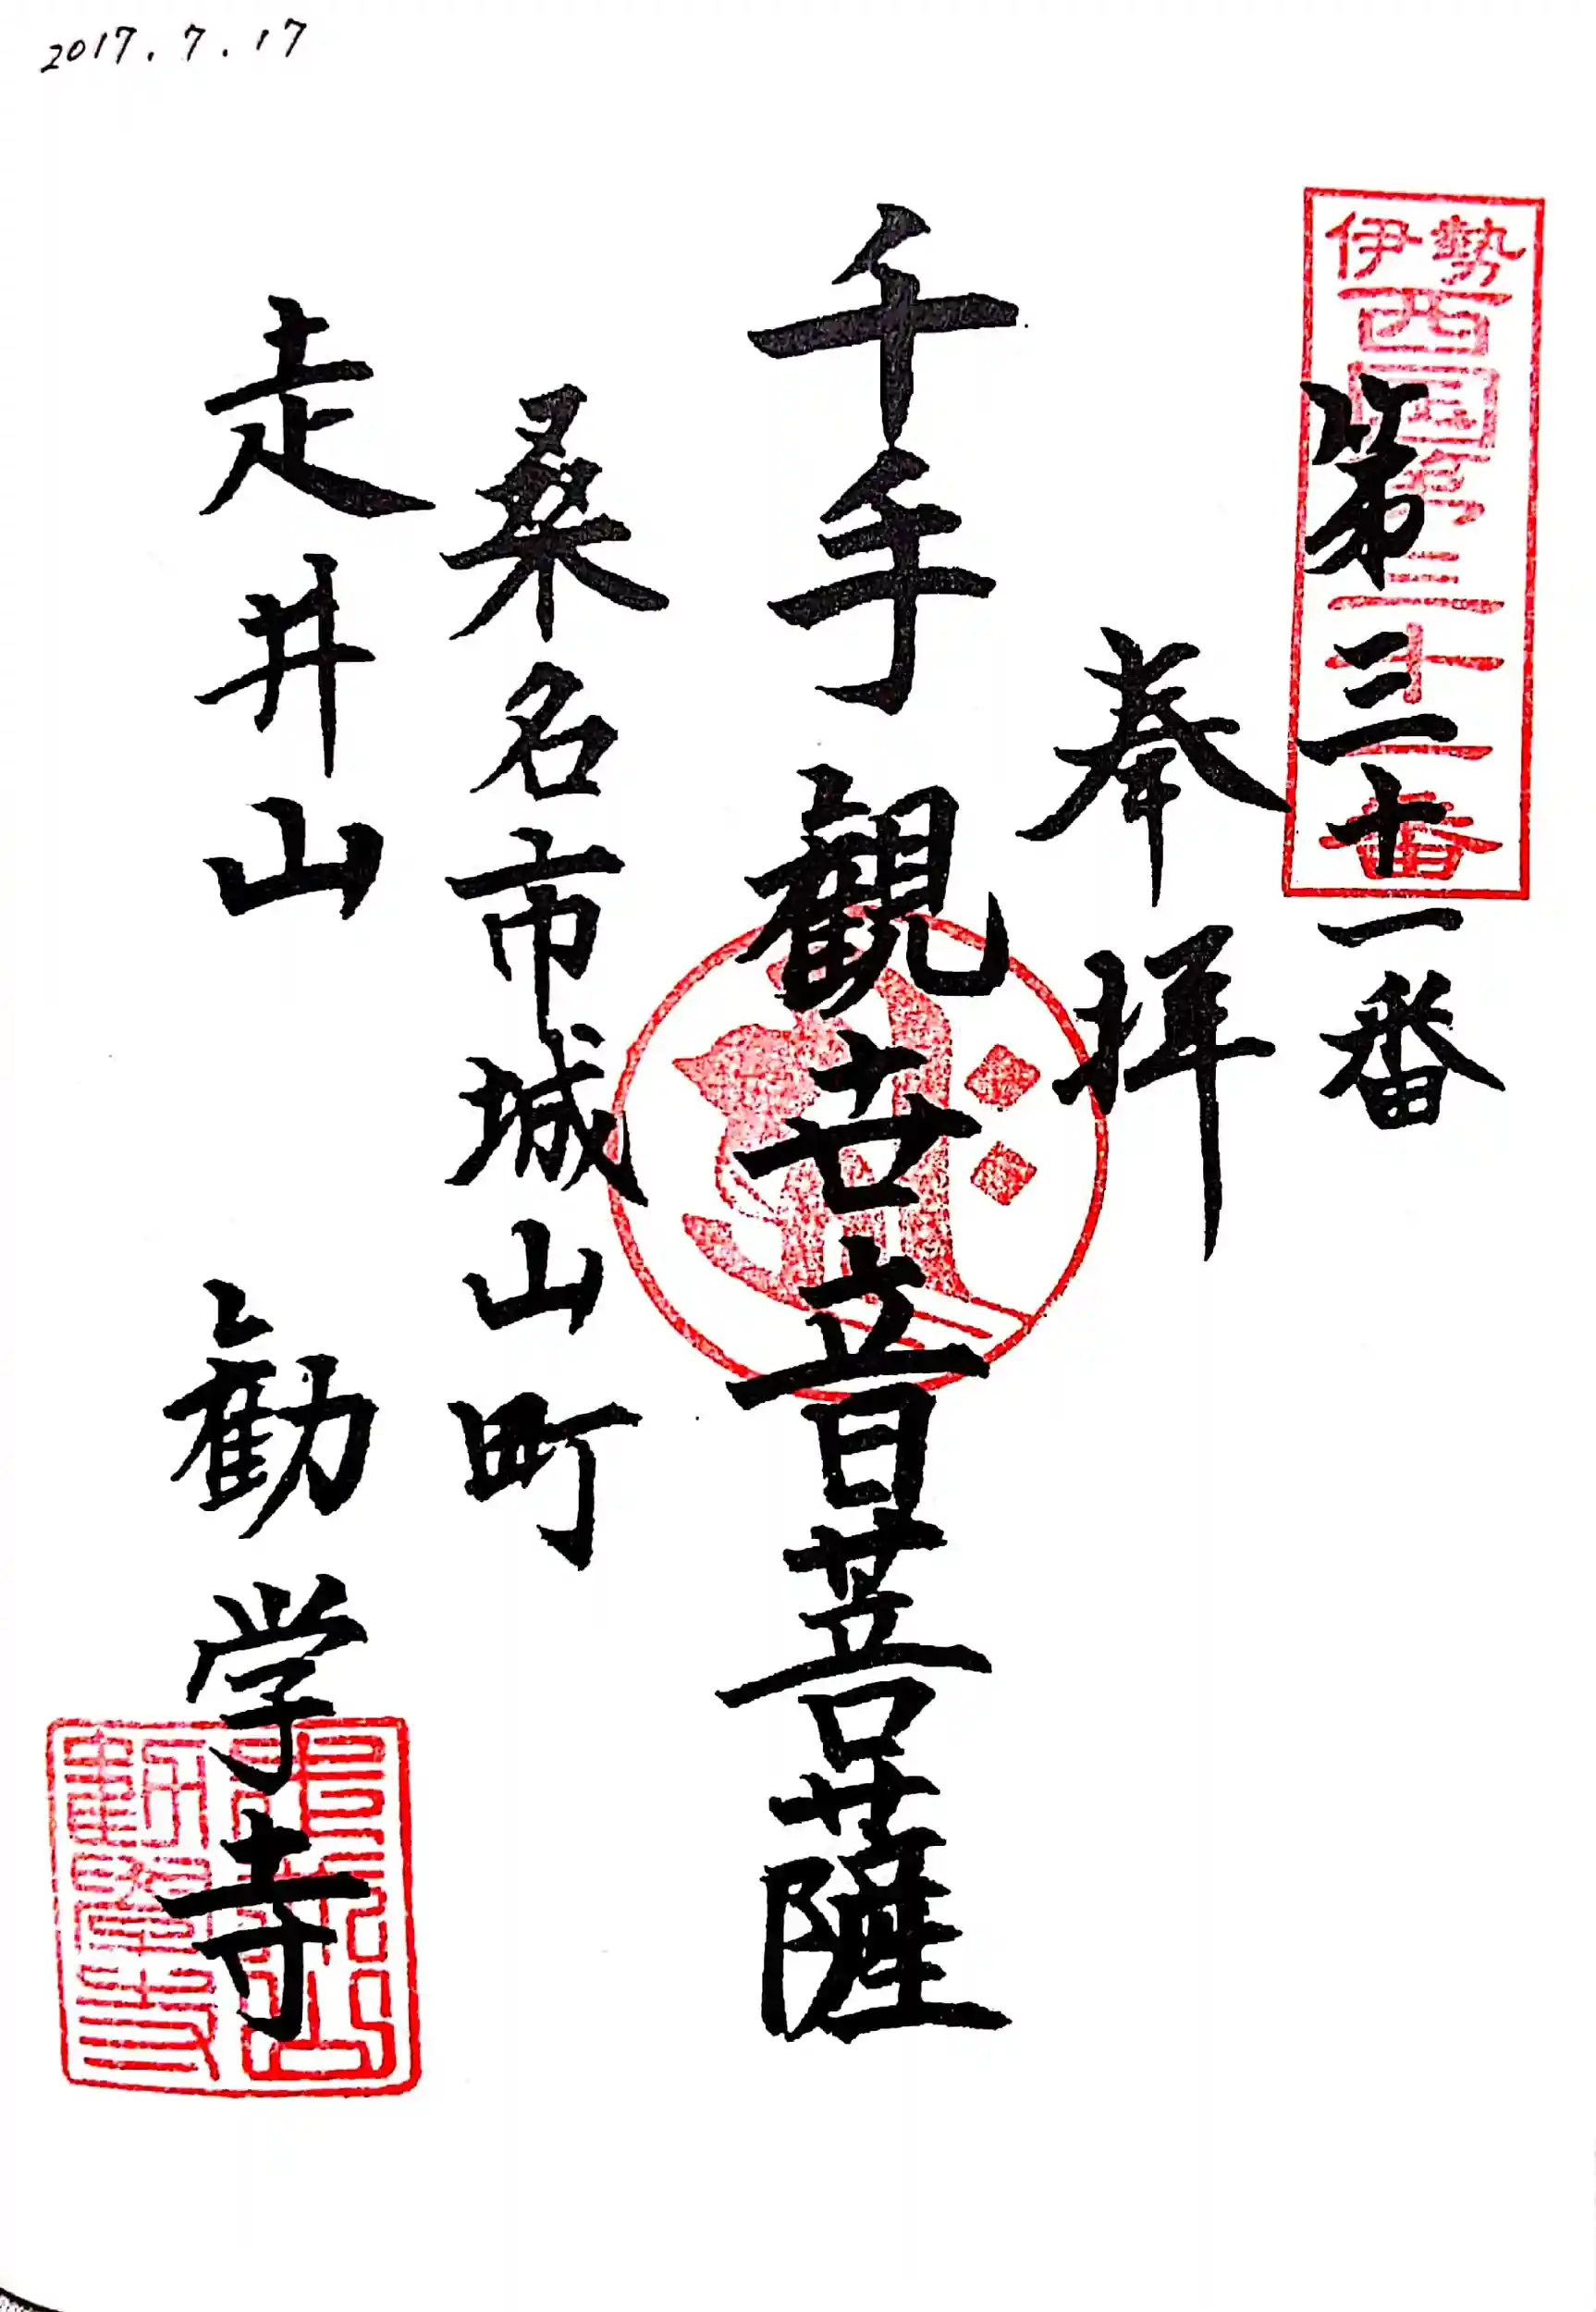 2017.7.17
伊勢西国第三十一番
第三十一番
奉拝
千手観世音菩薩
桑名市城山町
走井山 勧学寺
走井山
勧学寺